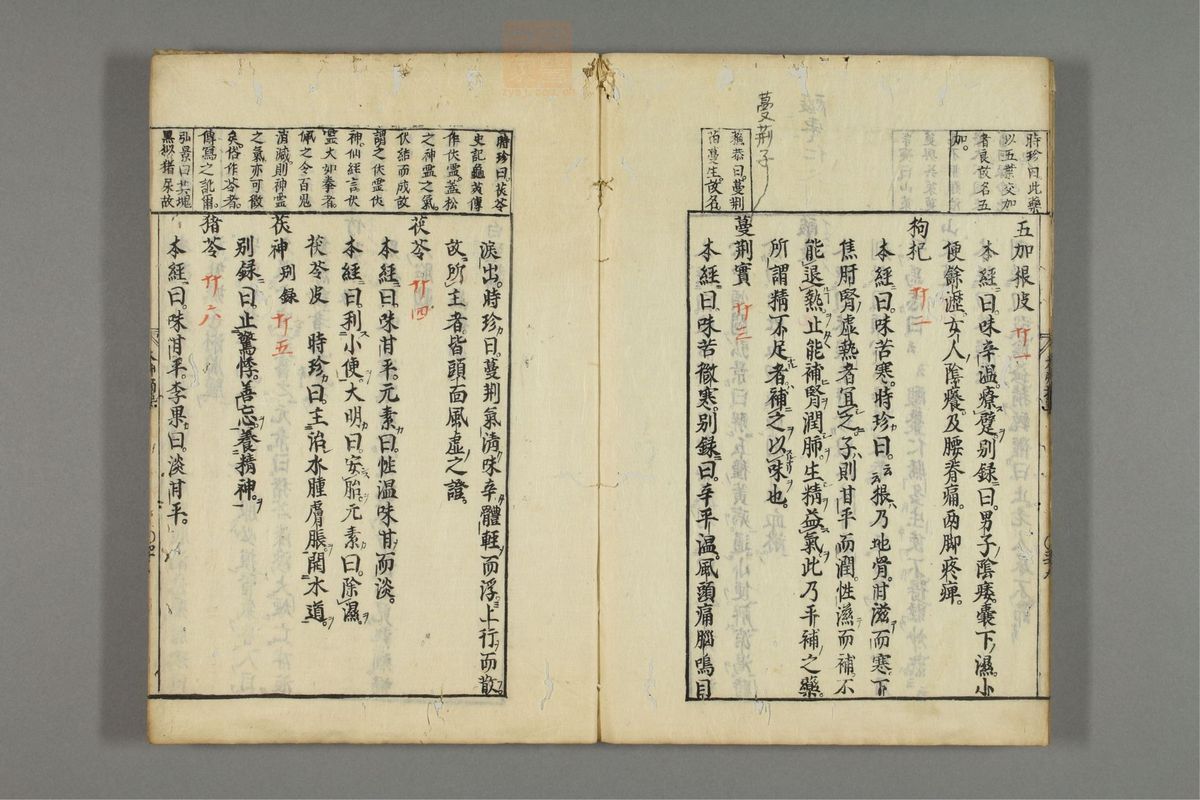 時珍曰此藥
以五葉交加
者良故名五
加。
五加根皮 廿一
本經曰。味辛溫。療躄。别録曰。男子陰痿。囊下濕。小
便餘瀝。女人陰癢。及腰脊痛。兩脚疼痺。
枸杞 廿二
本經曰。味苦寒。時珍曰。云云根乃地骨。甘滋而寒。下
焦肝腎虚熱者宜之。子則甘平而潤。性滋而補。不
能退熱。止能補腎潤肺。生精益氣。此乃平補之藥。
所謂精不足者。補之以味也。
蔓荆子
蘓恭曰。蔓荆
苗蔓生。故名
蔓荆實 廿三
本經曰。味苦微寒。别録曰。辛平温。風頭痛腦鳴目
淚出。時珍曰。蔓荆氣清味辛。體輕而浮。上行而散。
故所主者。皆頭面風虚之證。
時珍曰。茯苓
史記龜莢傳
作伏靈。蓋松
之神靈之氣。
伏結而成。故
謂之伏靈伏
神。仙經言伏
靈大如拳者。
佩之令百鬼
消滅。則神靈
之氣亦可徴
矣。俗作苓者。
傳寫之訛爾。
茯苓 廿四
本經曰。味甘平。元素曰。性温味甘而淡。
本經曰。利小便。大明曰。安胎。元素曰。除濕。
茯苓皮 時珍曰。主治水腫膚脹。開水道。
茯神 别録 廿五
别録曰。止驚悸。善忘。養精神。
弘景曰其塊
黒似猪屎故
猪苓 廿六
本經曰。味甘平。李果曰。淡甘平。